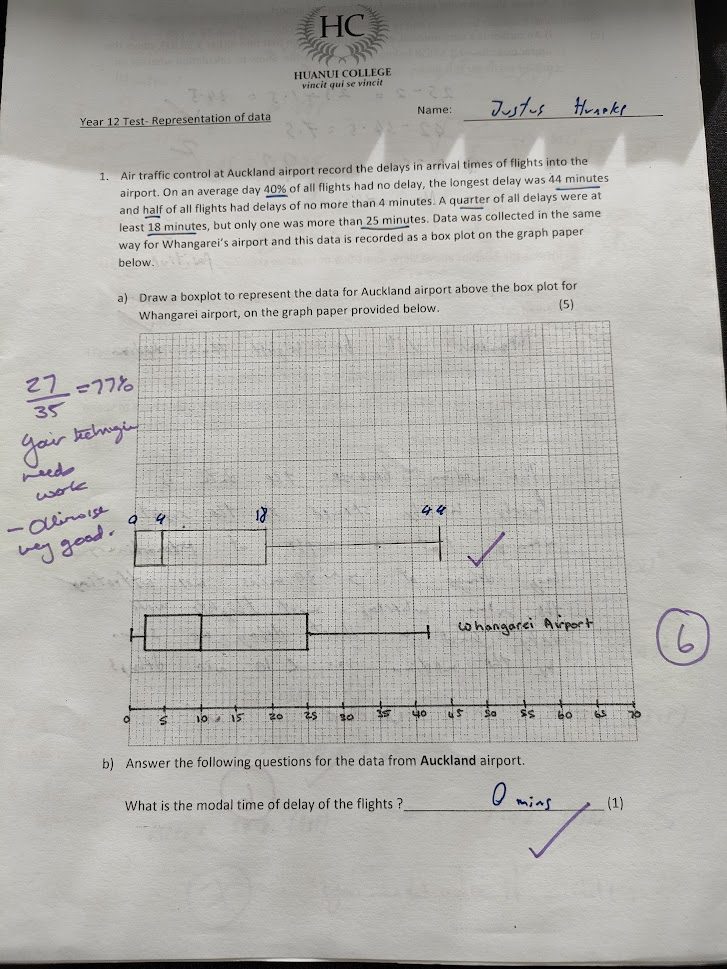 HC
HUANUI COLLEGE
vincit qui se vincit
Year 12 Test- Representation of data
Name: Justus
1. Air traffic control at Auckland airport record the delays in arrival times of flights into the
airport. On an average day 40% of all flights had no delay, the longest delay was 44 minutes
and half of all flights had delays of no more than 4 minutes. A quarter of all delays were at
least 18 minutes, but only one was more than 25 minutes. Data was collected in the same
way for Whangarei's airport and this data is recorded as a box plot on the graph paper
below.
a) Draw a boxplot to represent the data for Auckland airport above the box plot for
Whangarei airport, on the graph paper provided below. (5)
27
35
=77%
needs
work
- Otherwise
very good.
0 4 18 44
Whangarei Airport
6
0 5 10 15 20 25 30 35 40 45 50 55 60 65 70
b) Answer the following questions for the data from Auckland airport.
What is the modal time of delay of the flights ? 0 mins (1)